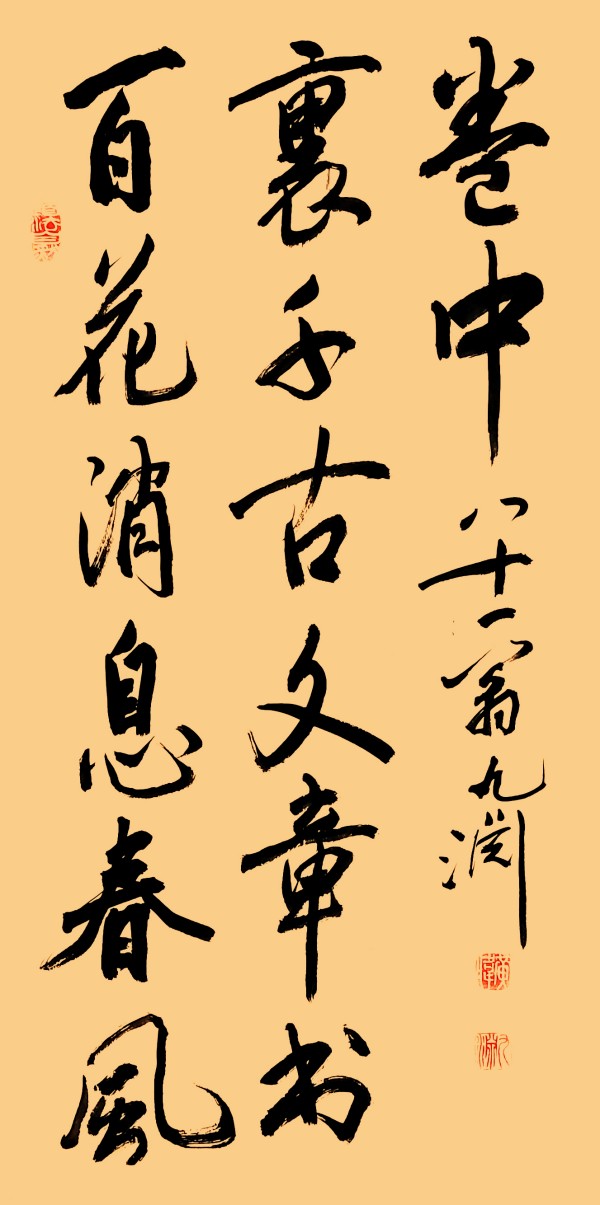 百花消息春風
裏千古文章书
卷中
八十一翁九渊